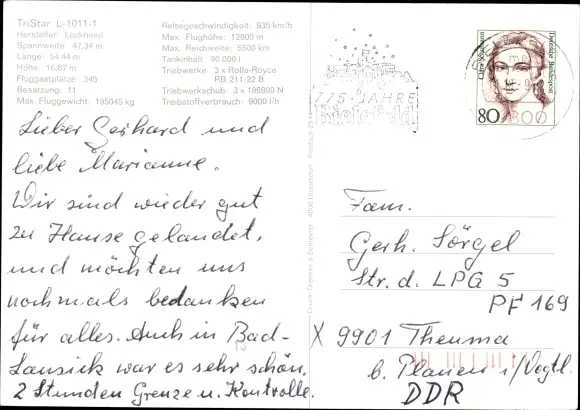 TriStar L-1011-1
Hersteller Lockheed
Spannweite: 47,34 m
Länge: 54,44 m
Höhe: 16,87 m
Fluggastplätze: 345
Besatzung: 11
Max. Fluggewicht: 195045 kg
Reisegeschwindigkeit: 935 km/h
Max. Flughöhe: 12800 m
Max. Reichweite: 5500 km
Tankinhalt 90.000 l
Triebwerke: 3 x Rolls-Royce
RB 211-22 B
Triebwerkschub: 3 x 186900 N
Treibstoffverbrauch: 9000 l/h
Lieber Gerhard und
liebe Marianne.
Wir sind wieder gut
zu Hause gelandet,
und möchten uns
nochmals bedanken
für alles. Auch in Bad-
Lausick war es sehr schön.
2 Stunden Grenze u. Kontrolle.
775 JAHRE
Bielefeld
Clara Schumann
Deutsche Bundespost
80
Fam.
Gerh. Sörgel
Str. d. LPG 5
PF 169
X 9901 Theuma
b. Plauen i/Vogtl.
DDR